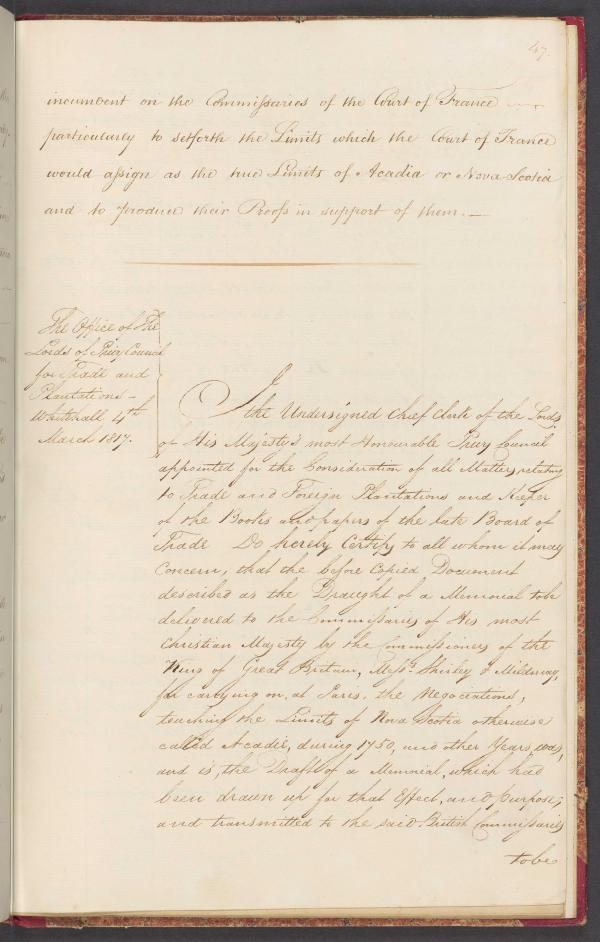 47.
incumbent on the Commissaries of the Court of France
particularly to setforth the Limits which the Court of France
would assign as the true Limits of Acadia or Nova Scotia
and to produce their Proofs in support of them. —
The Office of The
Lords of Privy Council
for Trade and
Plantations —
Whitehall 4th
March 1817.
I the Undersigned Chief Clerk of the Lords
of His Majesty's most Honourable Privy Council
appointed for the Consideration of all Matters relating
to Trade and Foreign Plantations and Keeper
of the Books and papers of the late Board of
Trade Do hereby Certify to all whom it may
Concern, that the before Copied Document
described as the Draught of a Memorial to be
delivered to the Commissaries of His most
Christian Majesty by the Commissioners of the
King of Great Britain, Messrs. Shirley & Mildmay,
for carrying on, at Paris, the Negociations,
touching the Limits of Nova Scotia otherwise
called Acadie, during 1750, and other Years, was,
and is, the Draft of a Memorial, which had
been drawn up for that Effect, and purpose;
and transmitted to the said British Commissaries
to be